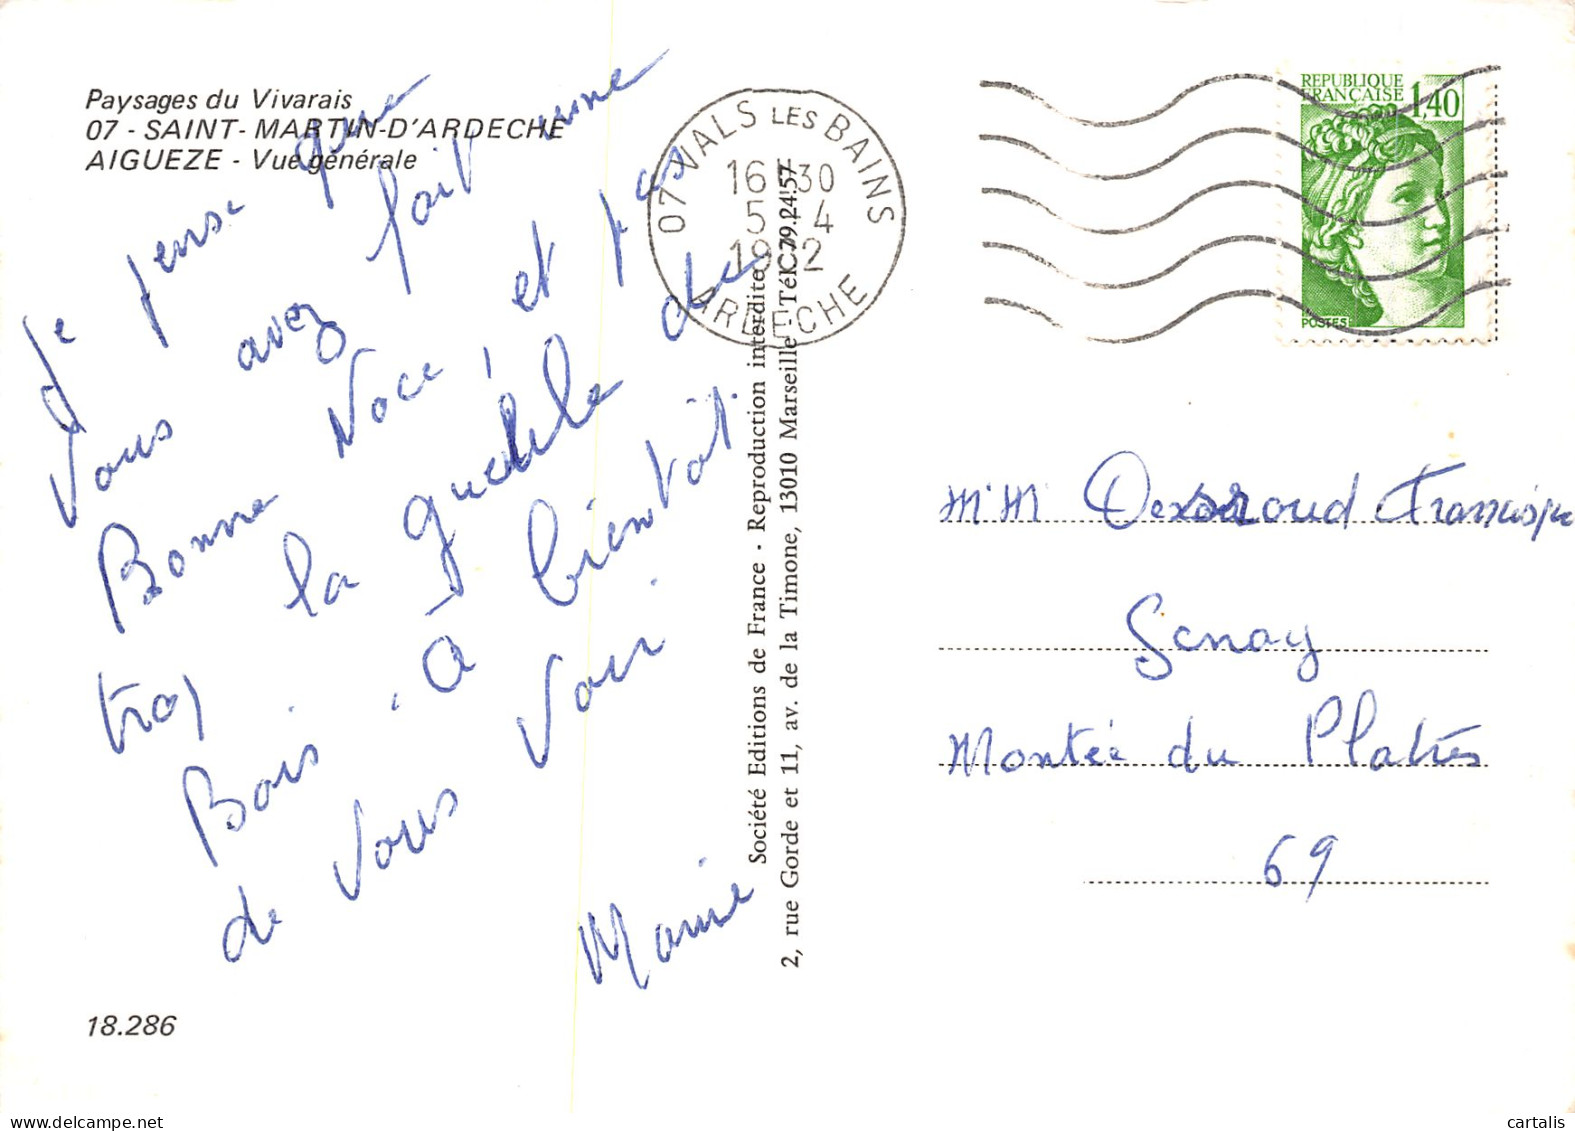 Paysages du Vivarais
07 - SAINT-MARTIN-D'ARDECHE
AIGUEZE - Vue générale
Je pense que
vous avez fait une
Bonne Noce, et pas
trop la gueule de
Bois. A bientôt
de vous voir
Mamie
18.286
Société Editions de France - Reproduction interdite
2, rue Gorde et 11, av. de la Timone, 13010 Marseille - Tél. 79.24.57
07 VALS LES BAINS
16 H 30
5 4
1982
ARDECHE
REPUBLIQUE
FRANÇAISE
1,40
POSTES
Mr Mme
Genay
Montée du Platres
69
cartalis